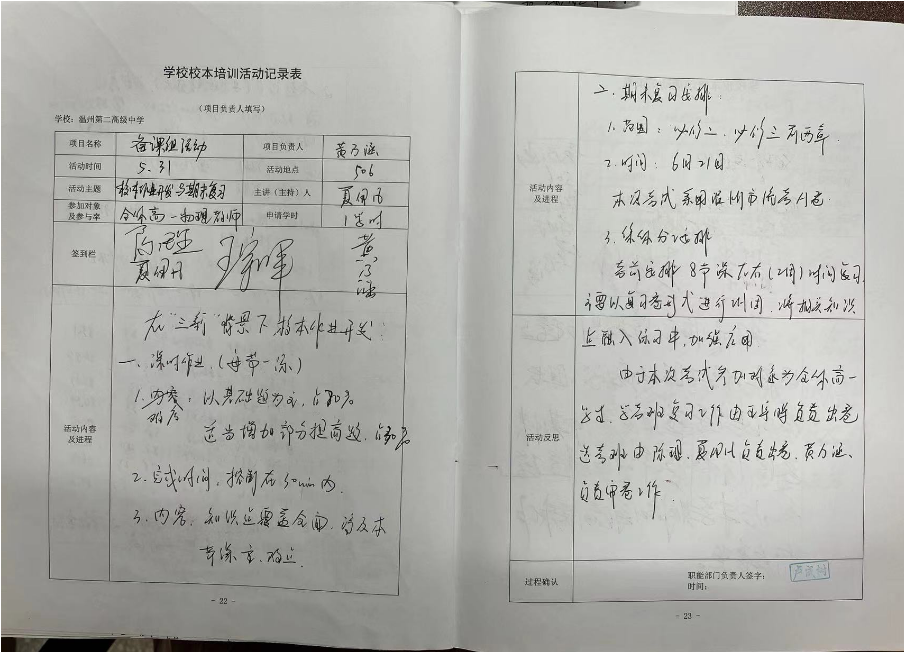 学校校本培训活动记录表
（项目负责人填写）
学校：温州第二高级中学
项目名称 备课组活动 项目负责人 黄乃涵
活动时间 5.31 活动地点 506
活动主题 校本作业开发与期末复习 主讲（主持）人
参加对象及参与率 全体高一物理教师 申请学时 1学时
签到栏
活动内容及进程
在“三新”背景下校本作业开发：
一、课时作业（每节一练）
1.内容：以基础题为主，占70%
难度
适当增加部分提高题，占30%
2.完成时间，控制在30min内.
3.内容：知识点覆盖全面，涉及本
节深意、难点.
- 22 -
活动内容及进程
二、期末复习安排：
1.范围：必修二、必修三前两章
2.时间：6月21日.
本次考试采用温州市统考
3.具体分工安排
考前安排8节课左右（2周）时间复习，
主要以复习卷形式进行训练，将相关知识
点融入练习中，加强应用
活动反思
由于本次考试参加对象为全体高一
学生，学考班复习工作由 负责出卷
选考班由陈 负责出卷，黄乃涵、
负责审卷工作.
过程确认
职能部门负责人签字：
时间：
- 23 -